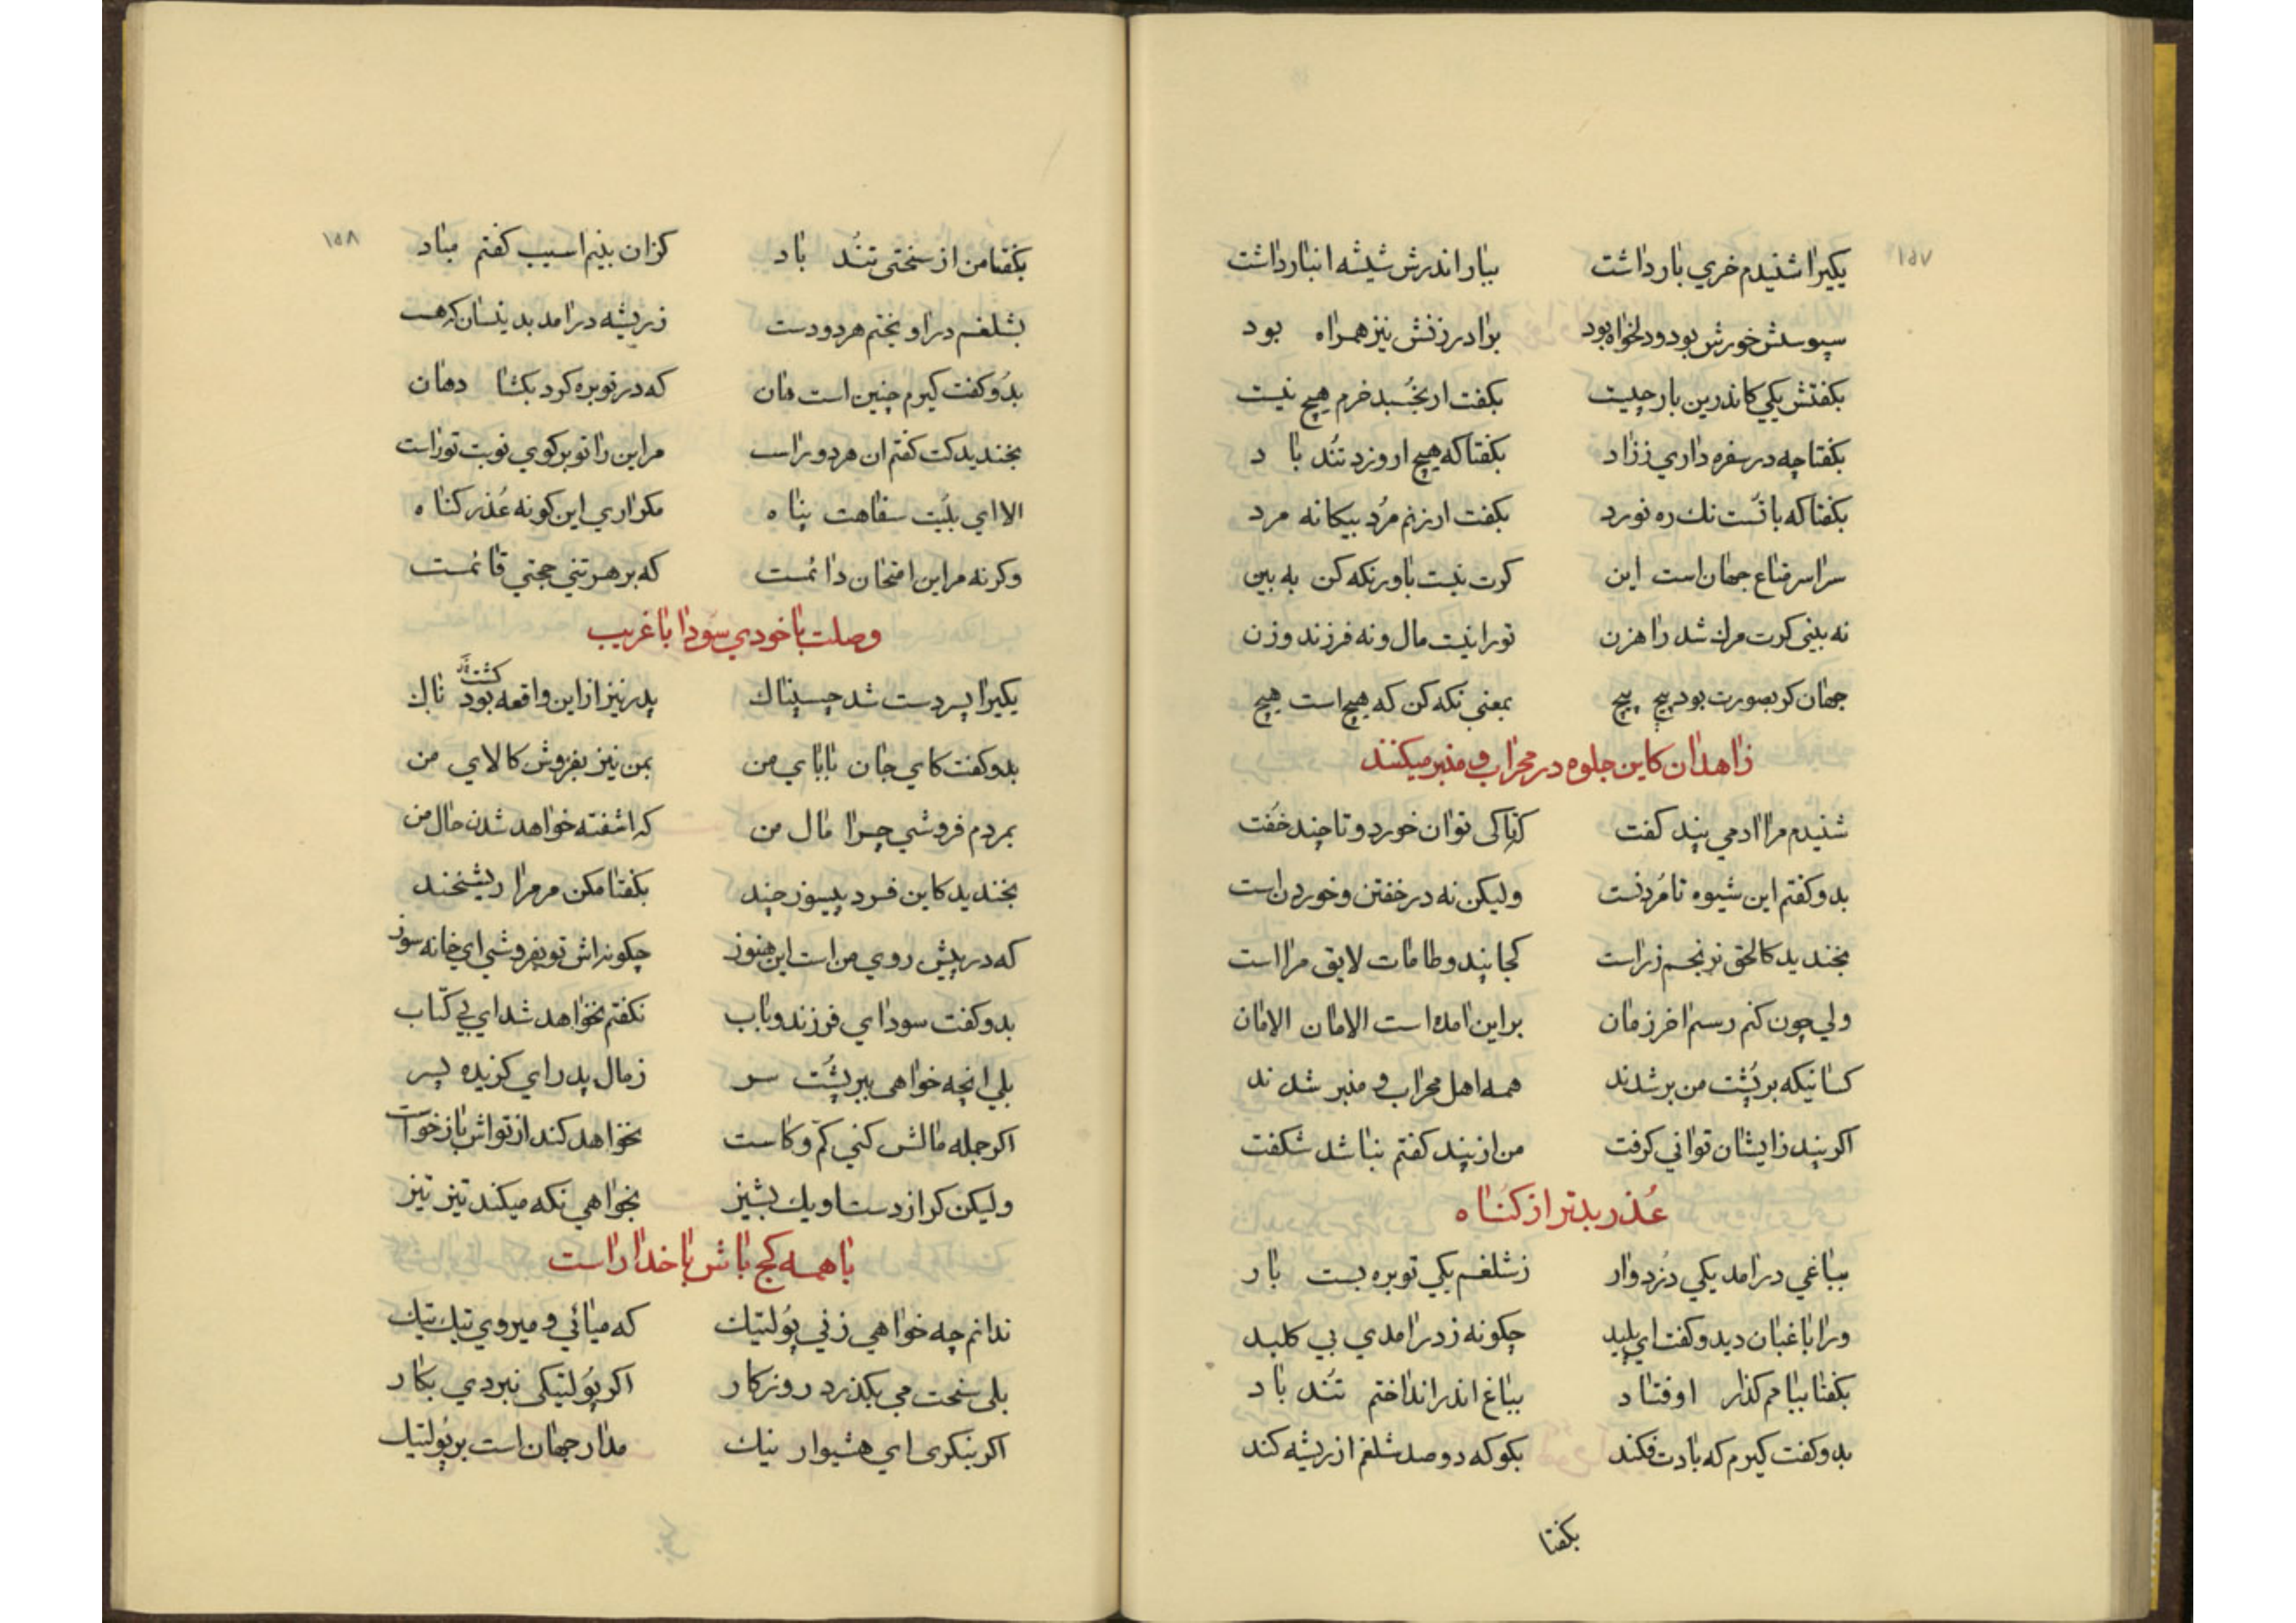 ۱۵۷
یکیرا شنیدم خري بار داشت ببار اندرش شیشه انبار داشت
سبوسش خورش بود و دلخواه بود برادر زنش نیز همراه بود
بکفتش یکي کاندرین بار چیست بکفت ار بخُسبد خرم هیچ نیست
بکفتا چه در سفره داري ززاد بکفتا که هیچ ار وزد تُند باد
بکفتا که باتُست نك ره نورد بکفت ار زنم مرُد بیکانه مرد
سراسر متاع جهان است این کرت نیست باور نکه کن به بین
نه بیني کرت مرك شد راهزن تورا نیست مال و نه فرزند و زن
جهان کر بصورت بود پیچ پیچ بمعني نکه کن که هیچ است هیچ
زاهدان کاین جلوه در محراب و منبر میکنند
شنیدم مرا ادمي پند کفت که تاکی توان خورد و تا چند خُفت
بدو کفتم این شیوه تا مُردنست ولیکن نه در خفتن و خوردن است
بخندید کالحق نرنجم زراست کجا پند و طامات لایق مرا است
ولي چون کنم رسم اخر زمان براین امده است الامان الامان
کسانیکه بر پُشت من برشدند همه اهل محراب و منبر شدند
اکر پند زایشان تواني کرفت من از پند کفتم نباشد شکفت
عُذر بدتر از کُناه
بباغي درامد یکي دُزدوار زشلغم یکي توبره بست بار
ورا باغبان دید و کفت اي پلید چکونه زدر امدي بي کلید
بکفتا ببامم کذار اوفتاد بباغ اندر انداختم تُند باد
بدو کفت کیرم که بادت فکند بکو که دوصد شلغم از ریشه کند
بکفتا
۱۵۸
بکفتا من از سختی تُند باد کزان بینم اسیب کفتم مباد
بشلغم در اویختم هر دو دست زریشه درامد بدینسان که هست
بدُو کفت کیرم چنین است هان که در توبره کرد بکشا دهان
بخندید کت کفتم ان هر دو راست مر این را تو بر کوي نوبت توراست
الا اي بلیّت سفاهت پناه مکر اري این کونه عُذر کناه
وکرنه مر این امتحان دائمست که بر هر تني حجتي قائمست
وصلت با خودي سَودا با غریب
یکیرا پسر دست شد چسپناك پدر نیز از این واقعه بود کشته تاك
بدو کفت کاي جان باباي من بمن نیز بفروش کالاي من
بمردم فروشي چرا مال من که اشفته خواهد شدن حال من
بخندید کاین فرد پیسوز چند بکفتا مکن مر مرا ریشخند
که در پیش روي من است این هنوز چکونه اش تو بفروشي اي خانه سوز
بدو کفت سوداي فرزند و باب نکفتم نخواهد شد اي بي کتاب
بلي انچه خواهي ببر پُشت سر زمال پدر اي کزیده پسر
اکر جمله مالش کني کم و کاست نخواهد کند از تواش باز خواست
ولیکن کر از دست او یك پشیز بخواهي نکه میکند تیز تیز
با همه کج باش با خدا راست
ندانم چه خواهي زني پُولتیك که میائي و میروي تیك تیك
بلی سخت مي بکذرد روزکار اکر پُولتیکی نبردي بکار
اکر بنکری اي هشیوار نیك مدار جهان است بر پُولتیك